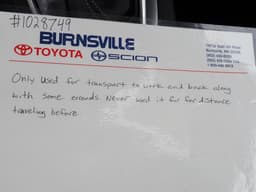 #1028749
BURNSVILLE
TOYOTA SCION
Only used for transport to work and back along
with some errands. Never used it for far distance
traveling before